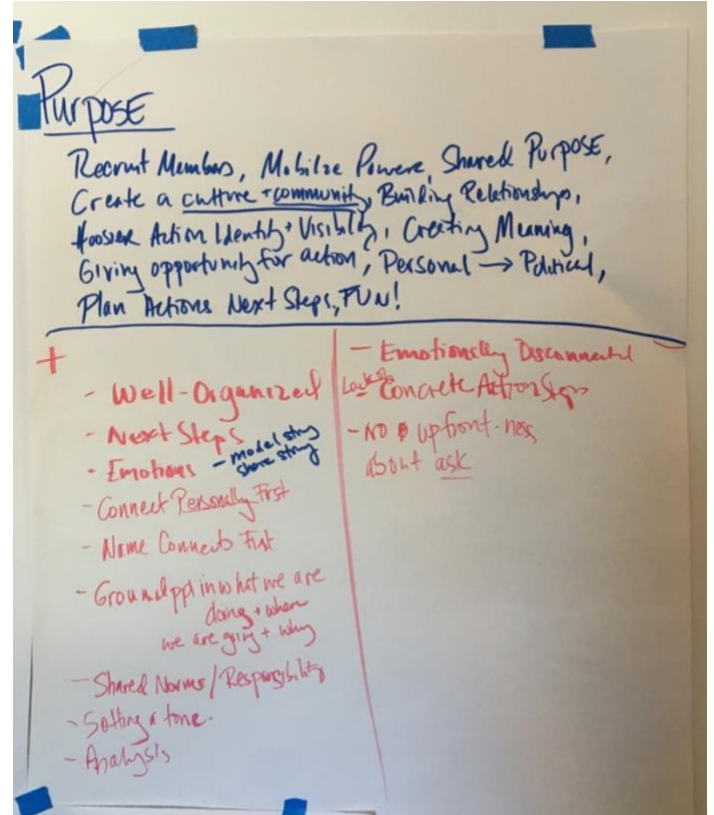 Purpose
Recruit Members, Mobilze Powere, Shared Purpose,
Create a culture + community, Building Relationships,
Hoosier Action Identity + Visiblty, Creating Meaning,
Giving opportunity for action, Personal → Political,
Plan Actions Next Steps, FUN!
+
- Well-Organized
- Next Steps
- Emotions - model story
share story
- Connect Personally First
- Name Connects First
- Ground ppl in what we are
doing + where
we are going + why
- Shared Norms / Responsibility
- Setting a tone.
- Analysis
- Emotionally Disconnected
Lack of Concrete Action Steps
- No upfront-ness
about ask